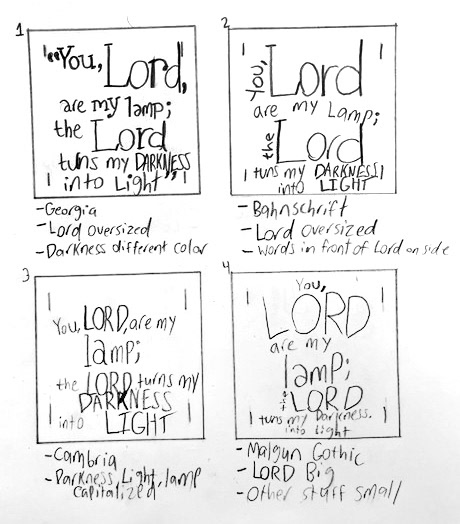 1
"You, Lord,
are my lamp;
the Lord
tuns my DARKNESS
into Light"
-Georgia
-Lord oversized
-Darkness different color
2
You, Lord
are my Lamp;
the Lord
tuns my DARKNESS
into LIGHT
-Bahnschrift
-Lord oversized
-words in front of Lord on side
3
You, LORD, are my
lamp;
the LORD turns my
DARKNESS
into LIGHT
-Cambria
-Darkness, Light, lamp
capitalized
4
You,
LORD
are my
lamp;
the LORD
tuns my Darkness.
into Light
-Malgun Gothic
-LORD Big
-Other stuff small